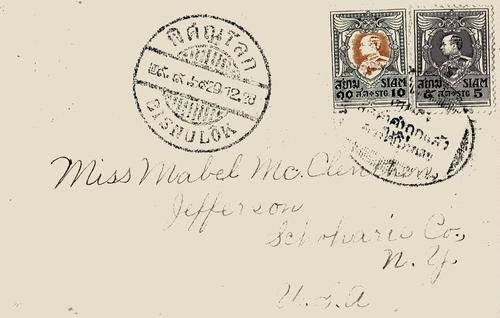 พิศณุโลก
29.12.28
BISNULOK
สยาม SIAM
๑๐ สต. STG 10
สยาม SIAM
๕ สต. STG 5
Miss Mabel Mc.Clenthen,
Jefferson
Schoharie Co,
N.Y.
U.S.A